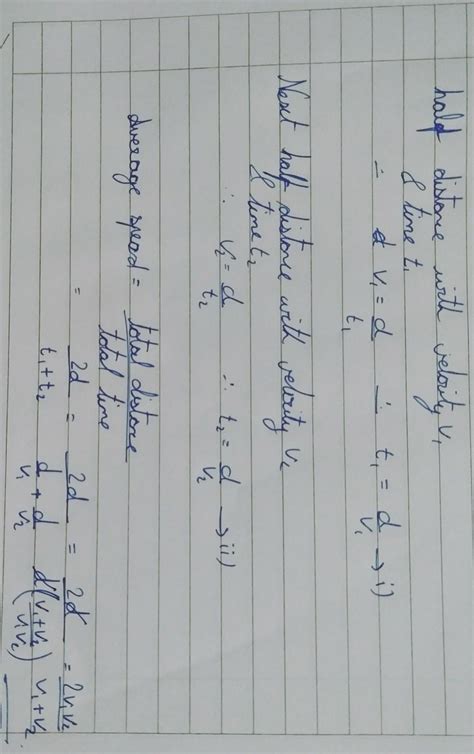 half distance with velocity v₁
& time t₁
∴ v₁ = d/t₁ ∴ t₁ = d/v₁ → i)
Next half distance with velocity v₂
& time t₂
∴ v₂ = d/t₂ ∴ t₂ = d/v₂ → ii)
Average spead = total distance/total time
= 2d/(t₁+t₂) = 2d/(d/v₁ + d/v₂) = 2d/(d((v₁+v₂)/(v₁v₂))) = 2v₁v₂/(v₁+v₂)